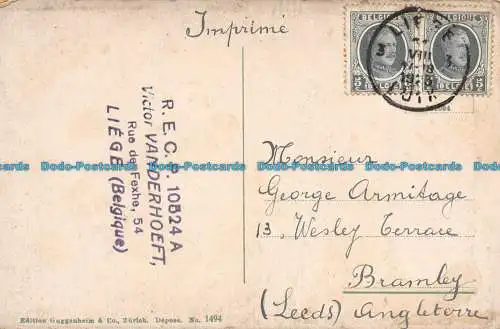 Imprimé
BELGIQUE
BELGIQUE
3
3
VIII
5
5
R. E. C. P. 10824 A
Victor VANDERHOEFT,
Rue de Fexhe, 54
LIÉGE (Belgique)
Monsieur
George Armitage
13, Wesley Terrace
Bramley
(Leeds) Angleterre
Edition Guggenheim & Co., Zürich. Déposé. No. 1494
Dodo-Postcards Dodo-Postcards Dodo-Postcards Dodo-Postcards Dodo-Postcards